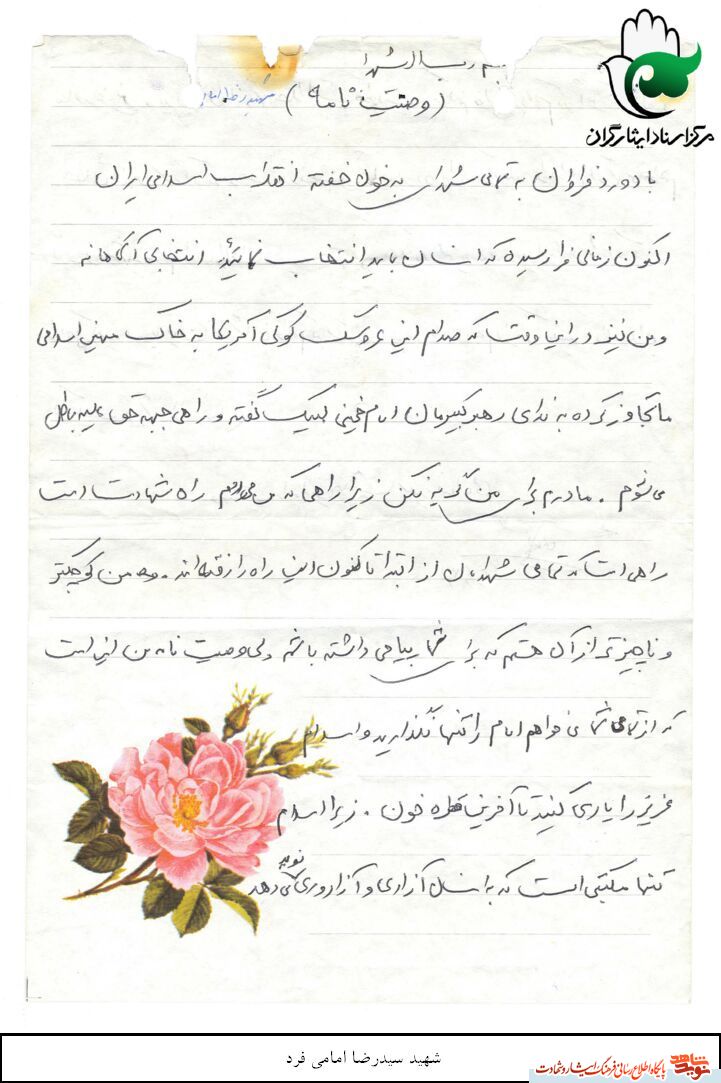 به رب الشهدا
(وصیت نامه)
شهید رضا امامی
مرکز اسناد ایثارگران
با درود فراوان به تمامی شهدای به خون خفته انقلاب اسلامی ایران
اکنون زمانی فرا رسیده که انسان باید انتخاب نماید، انتخابی آگاهانه
و من نیز در این وقت که صدام این عروسک کوکی آمریکا به خاک میهن اسلامی
ما تجاوز کرده به ندای رهبر کبیرمان امام خمینی لبیک گفته و راهی جبهه حق علیه باطل
می شوم . مادرم برای من گریه نکن زیرا راهی که من می روم راه شهادت است
راهی است که تمامی شهدایمان از ابتدا تا کنون این راه را رفته اند . و من کوچکتر
و ناچیز تر از آن هستم که برای شما پیامی داشته باشم ولی وصیت نامه من این است
که از تمامی شما می خواهم امام را تنها نگذارید و اسلام
عزیز را یاری کنید تا آخرین قطره خون . زیرا اسلام
تنها مکتبی است که به انسان آزادی و آزادروی نوید می دهد
شهید سیدرضا امامی فرد
نوید شاهد
پایگاه اطلاع رسانی فرهنگ ایثار و شهادت